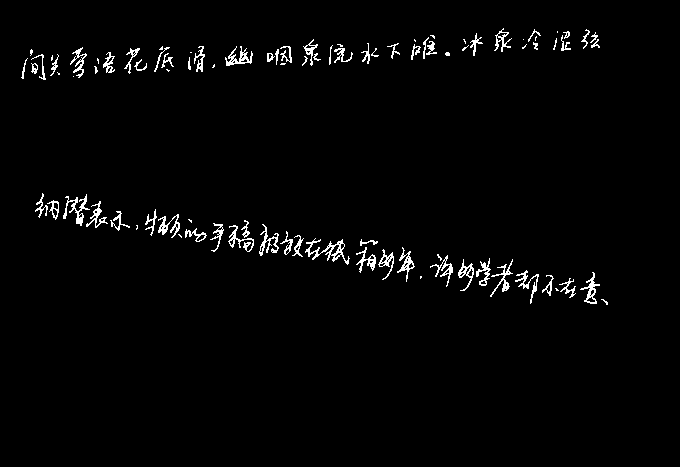 间关莺语花底滑,幽咽泉流水下滩。冰泉冷涩弦
纳潜表示,牛顿的手稿被放在纸箱多年,许多学者都不在意、